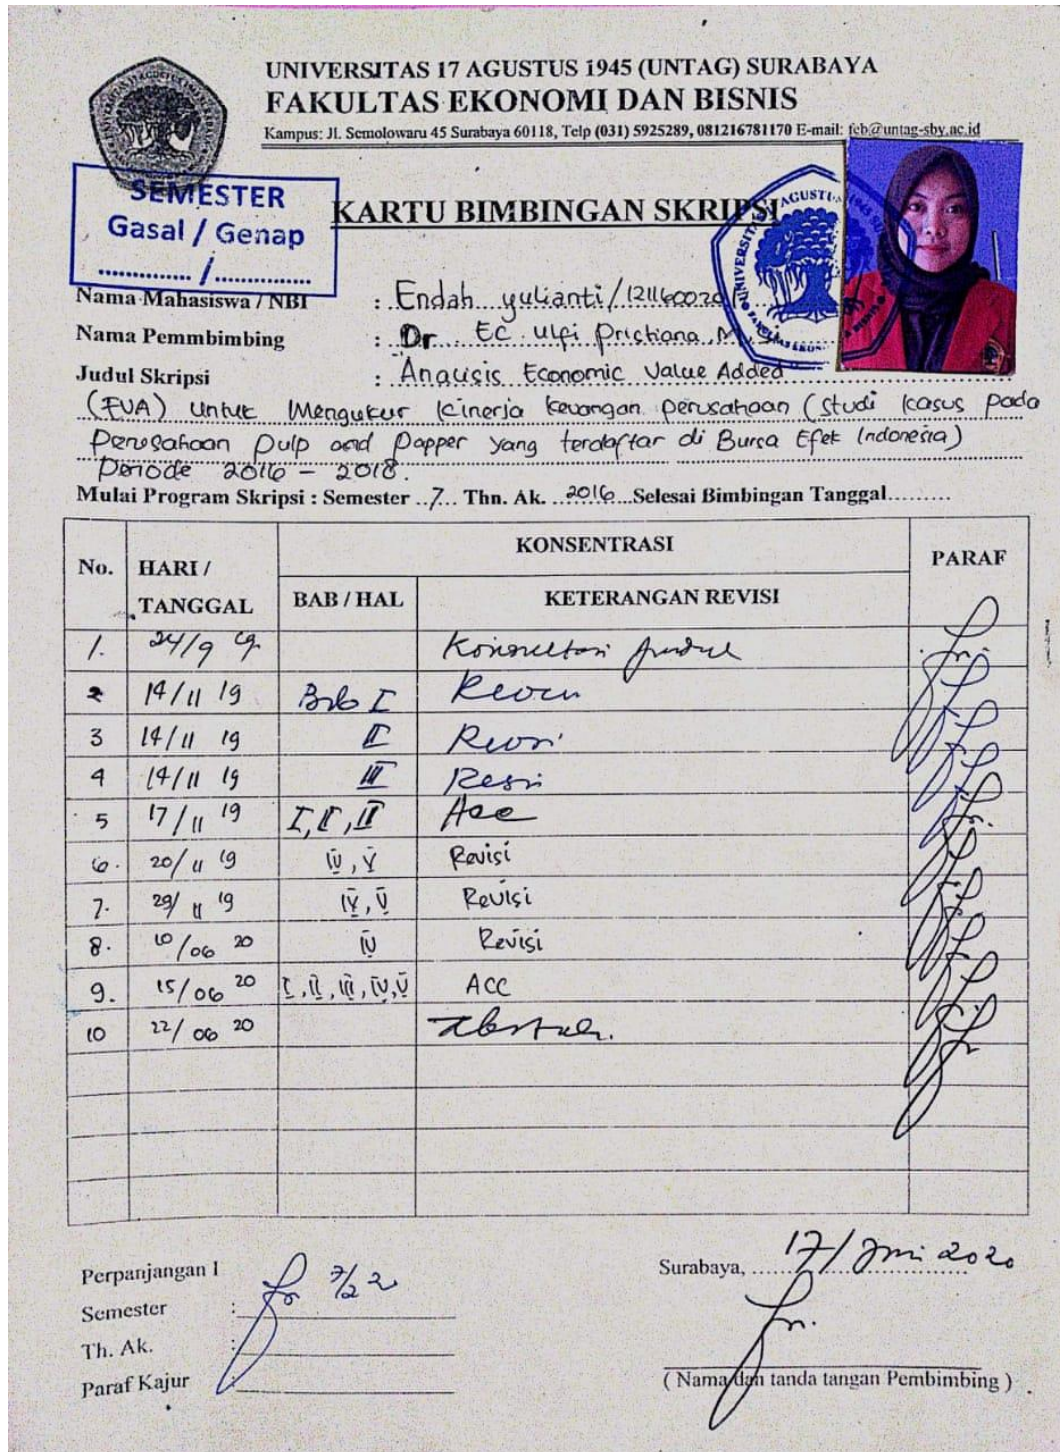 UNIVERSITAS 17 AGUSTUS 1945 (UNTAG) SURABAYA
FAKULTAS EKONOMI DAN BISNIS
Kampus: Jl. Semolowaru 45 Surabaya 60118, Telp (031) 5925289, 081216781170 E-mail: feb@untag-sby.ac.id
SEMESTER
Gasal / Genap
............./.............
KARTU BIMBINGAN SKRIPSI
Nama Mahasiswa / NBI : Endah yulianti /
Nama Pemmbimbing : Dr. EC. Ulfi Pristiana, M.Si
Judul Skripsi : Anausis Economic Value Added
(EVA) untuk Mengukur kinerja keuangan perusahaan (studi kasus pada
Perusahaan Pulp and Papper yang terdaftar di Bursa Efek Indonesia)
Periode 2016 - 2018.
Mulai Program Skripsi : Semester ..7... Thn. Ak. ..2016...Selesai Bimbingan Tanggal.........
No. HARI / TANGGAL KONSENTRASI PARAF
BAB / HAL KETERANGAN REVISI
1. 24/9 19 Konsultasi judul
2 14/11 19 Bab I Revisi
3 14/11 19 II Revisi
4 14/11 19 III Revisi
5 17/11 19 I, II, III Acc
6. 20/11 19 IV, V Revisi
7. 29/11 19 IV, V Revisi
8. 10/06 20 IV Revisi
9. 15/06 20 I, II, III, IV, V ACC
10 22/06 20 Abstrak.
Perpanjangan I
Semester :
Th. Ak. :
Paraf Kajur :
Surabaya, 17/ Juni 2020
( Nama dan tanda tangan Pembimbing )